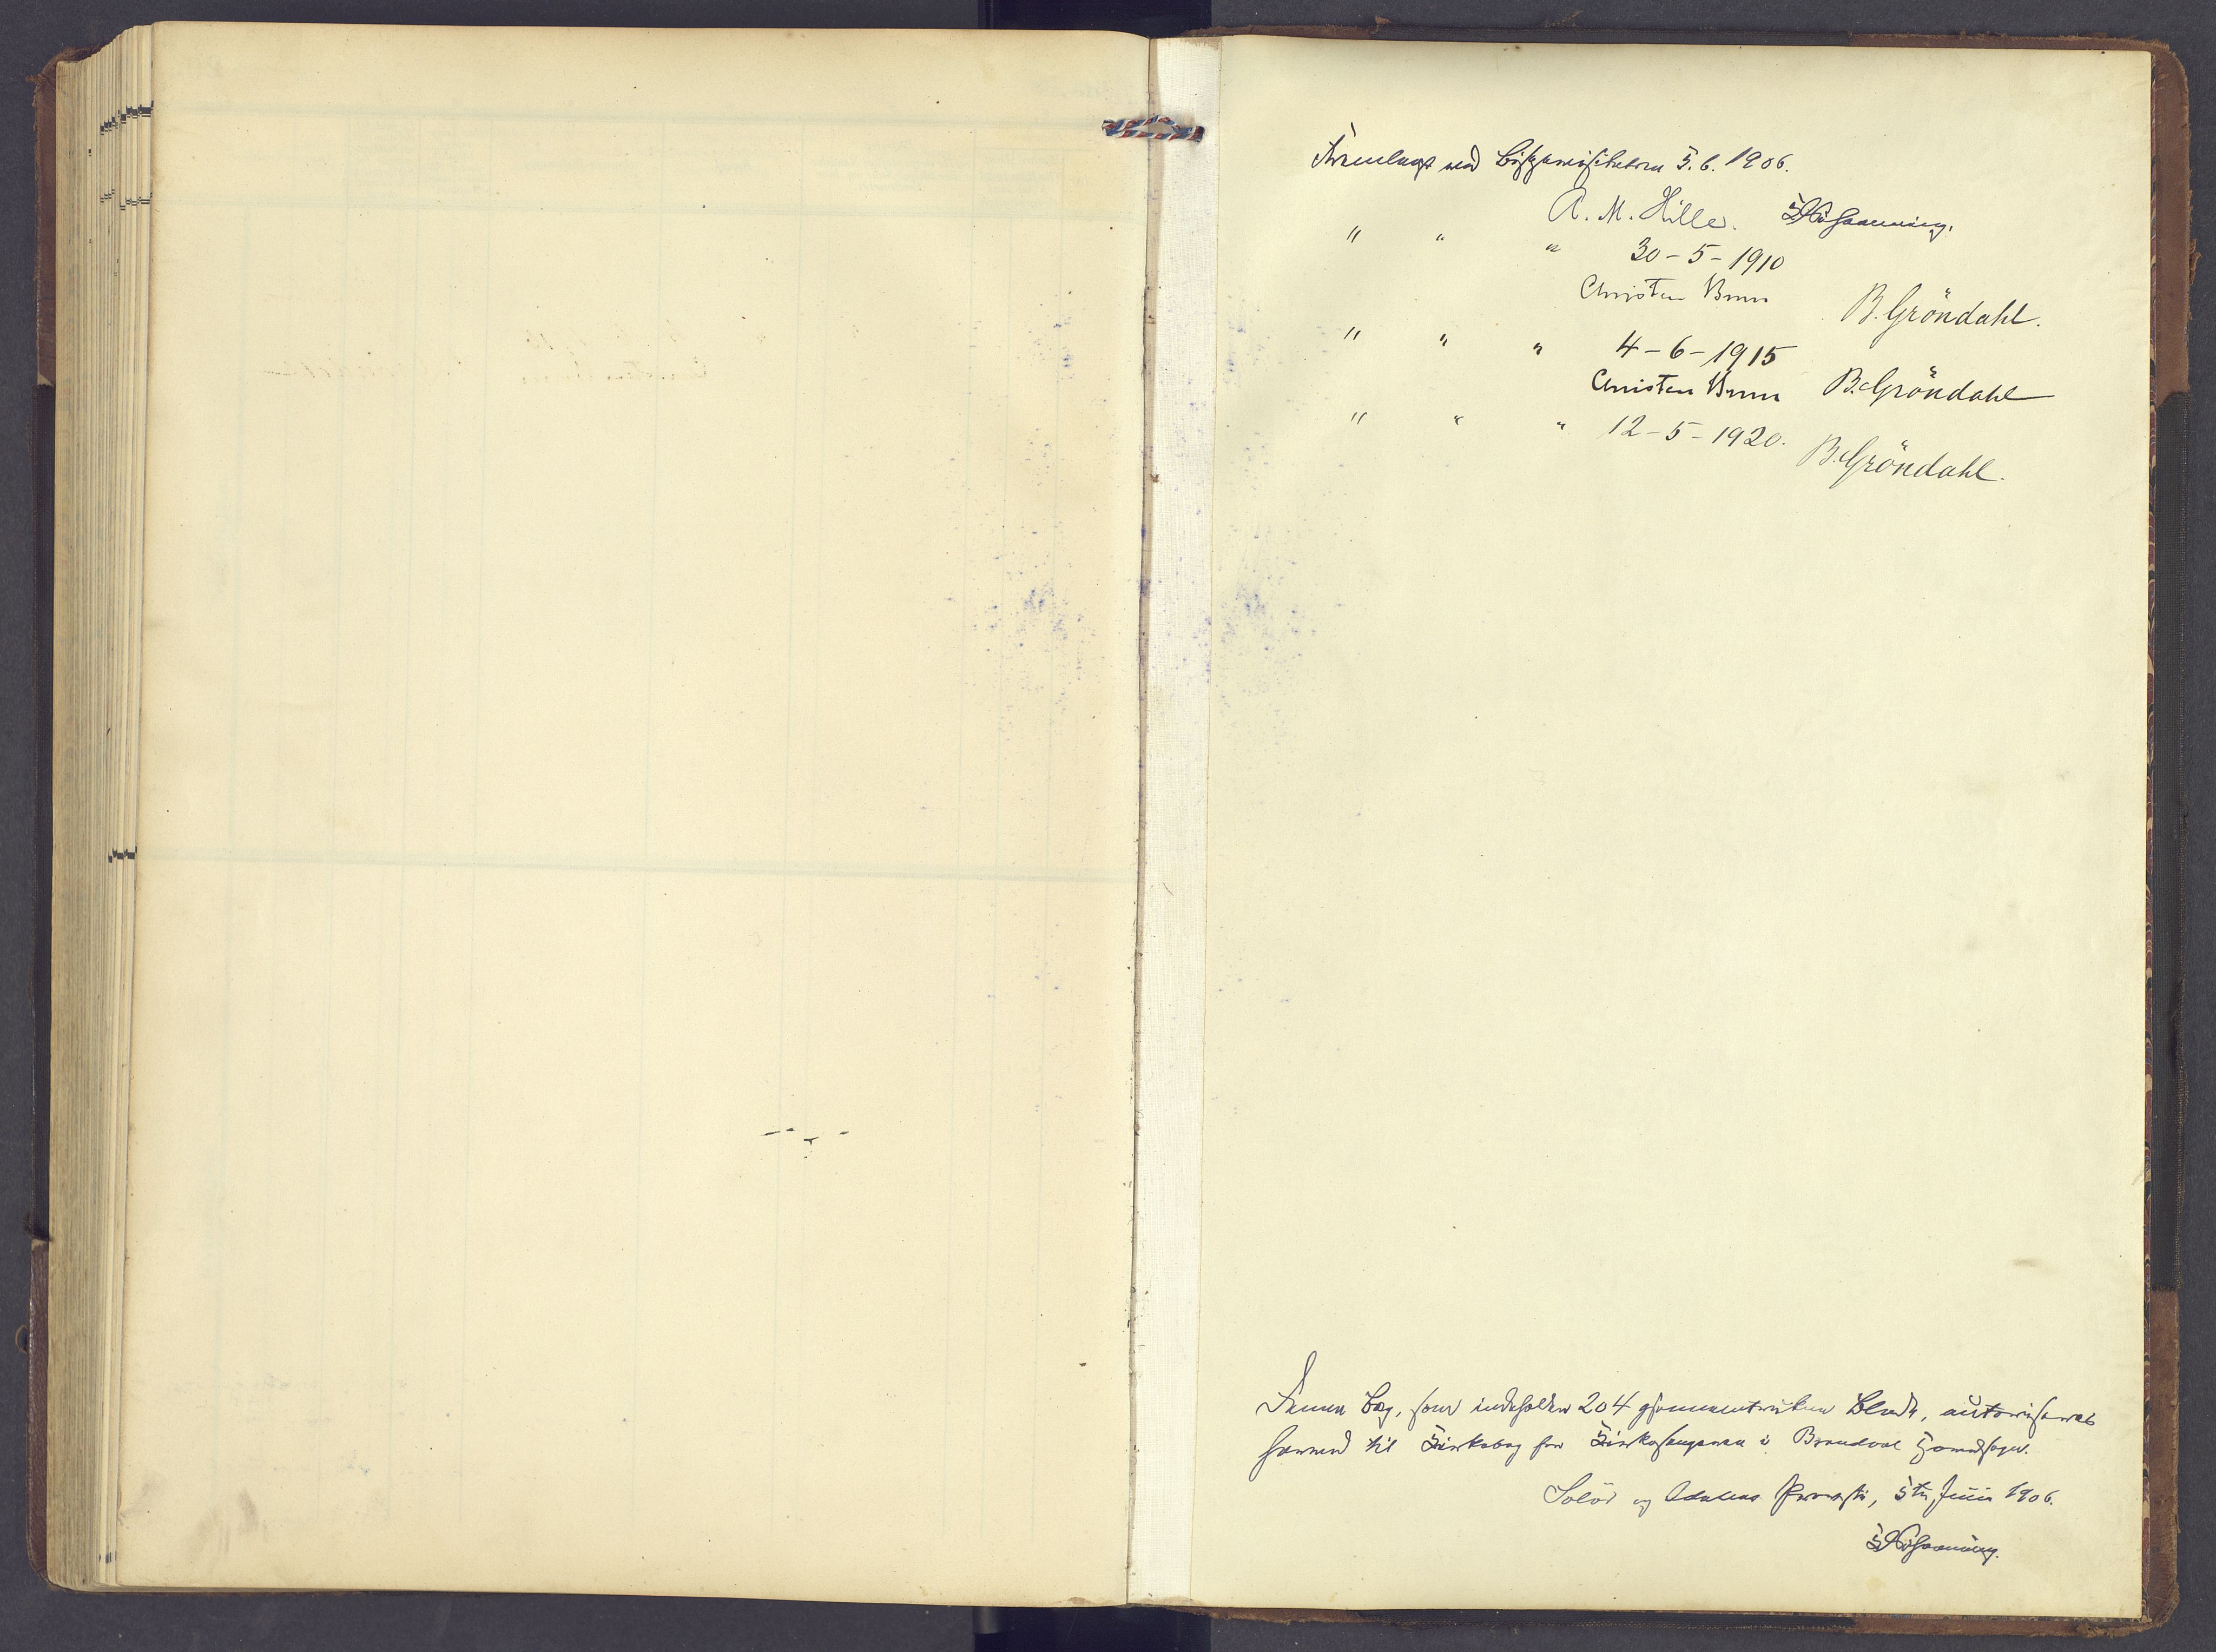 Fremlagt ved Bispevisitatsen 5.6.1906.
A. M. Hille.
" " " 30-5-1910
Christen Brun B. Gröndahl.
" " " 4-6-1915
Christen Brun B. Gröndahl
" " " 12-5-1920.
B. Gröndahl.
Denne Bog, som indeholder 204 gjennemtrukne Blade, autoriseres
herved til Kirkebog for Kirkesangeren i Brandval Hovedsogn.
Solør og Odalens Provsti, 5te Juni 1906.